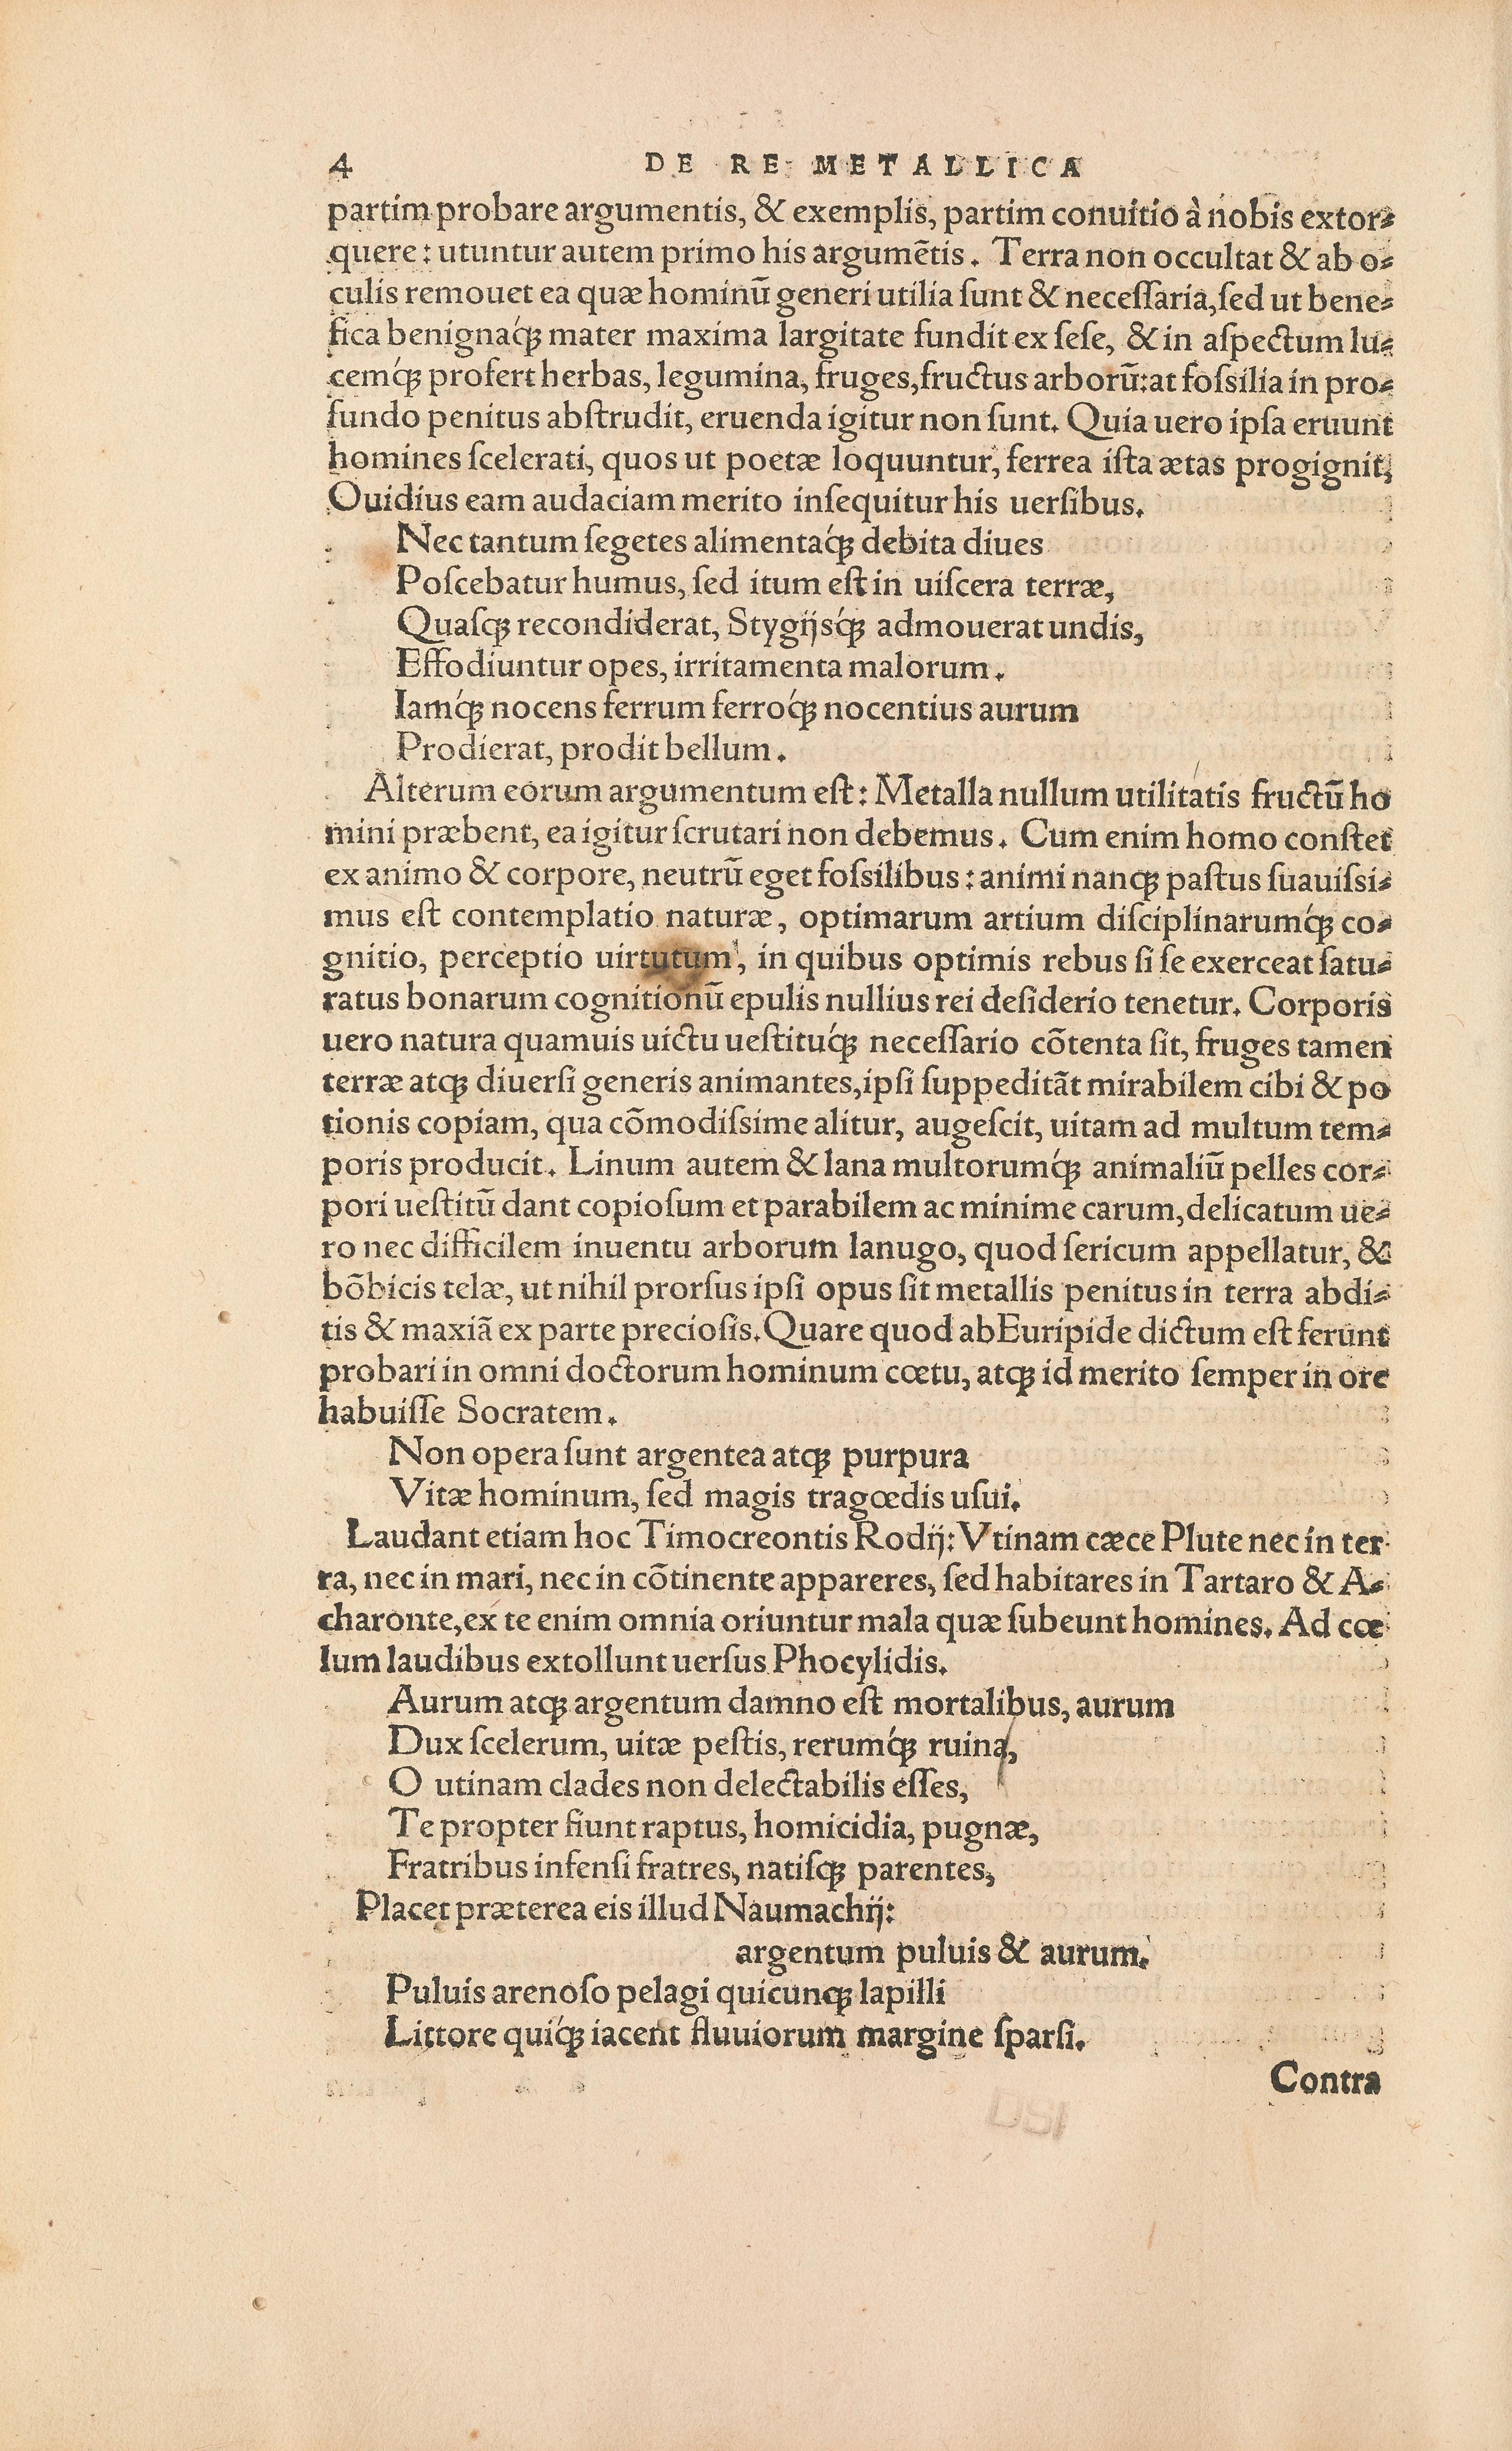 4 DE RE METALLICA
partim probare argumentis, & exemplis, partim conuitio à nobis extor⸗
quere: utuntur autem primo his argumẽtis. Terra non occultat & ab o⸗
culis remouet ea quæ hominũ generi utilia sunt & necessaria, sed ut bene⸗
fica benignaq́ꝫ mater maxima largitate fundit ex sese, & in aspectum lu⸗
cemq́ꝫ profert herbas, legumina, fruges, fructus arborũ: at fossilia in pro⸗
fundo penitus abstrudit, eruenda igitur non sunt. Quia uero ipsa eruunt
homines scelerati, quos ut poetæ loquuntur, ferrea ista ætas progignit,
Ouidius eam audaciam merito insequitur his uersibus.
Nec tantum segetes alimentaq́ꝫ debita diues
Poscebatur humus, sed itum est in uiscera terræ,
Quasqꝫ recondiderat, Stygijsq́ꝫ admouerat undis,
Effodiuntur opes, irritamenta malorum.
Iamq́ꝫ nocens ferrum ferroq́ꝫ nocentius aurum
Prodierat, prodit bellum.
Alterum eorum argumentum est: Metalla nullum utilitatis fructũ ho
mini præbent, ea igitur scrutari non debemus. Cum enim homo constet
ex animo & corpore, neutrũ eget fossilibus: animi nanqꝫ pastus suauissi⸗
mus est contemplatio naturæ, optimarum artium disciplinarumq́ꝫ co⸗
gnitio, perceptio uirtutum, in quibus optimis rebus si se exerceat satu⸗
ratus bonarum cognitionũ epulis nullius rei desiderio tenetur. Corporis
uero natura quamuis uictu uestituq́ꝫ necessario cõtenta sit, fruges tamen
terræ atqꝫ diuersi generis animantes, ipsi suppeditãt mirabilem cibi & po
tionis copiam, qua cõmodissime alitur, augescit, uitam ad multum tem⸗
poris producit. Linum autem & lana multorumq́ꝫ animaliũ pelles cor⸗
pori uestitũ dant copiosum et parabilem ac minime carum, delicatum ue⸗
ro nec difficilem inuentu arborum lanugo, quod sericum appellatur, &
bõbicis telæ, ut nihil prorsus ipsi opus sit metallis penitus in terra abdi⸗
tis & maxiã ex parte preciosis. Quare quod ab Euripide dictum est ferunt
probari in omni doctorum hominum cœtu, atqꝫ id merito semper in ore
habuisse Socratem.
Non opera sunt argentea atqꝫ purpura
Vitæ hominum, sed magis tragœdis usui.
Laudant etiam hoc Timocreontis Rodij: Vtinam cæce Plute nec in ter⸗
ra, nec in mari, nec in cõtinente appareres, sed habitares in Tartaro & A⸗
charonte, ex te enim omnia oriuntur mala quæ subeunt homines. Ad cœ⸗
lum laudibus extollunt uersus Phocylidis.
Aurum atqꝫ argentum damno est mortalibus, aurum
Dux scelerum, uitæ pestis, rerumq́ꝫ ruina,
O utinam clades non delectabilis esses,
Te propter fiunt raptus, homicidia, pugnæ,
Fratribus infensi fratres, natisqꝫ parentes,
Placet præterea eis illud Naumachij:
argentum puluis & aurum.
Puluis arenoso pelagi quicunqꝫ lapilli
Littore quiq́ꝫ iacent fluuiorum margine sparsi.
Contra